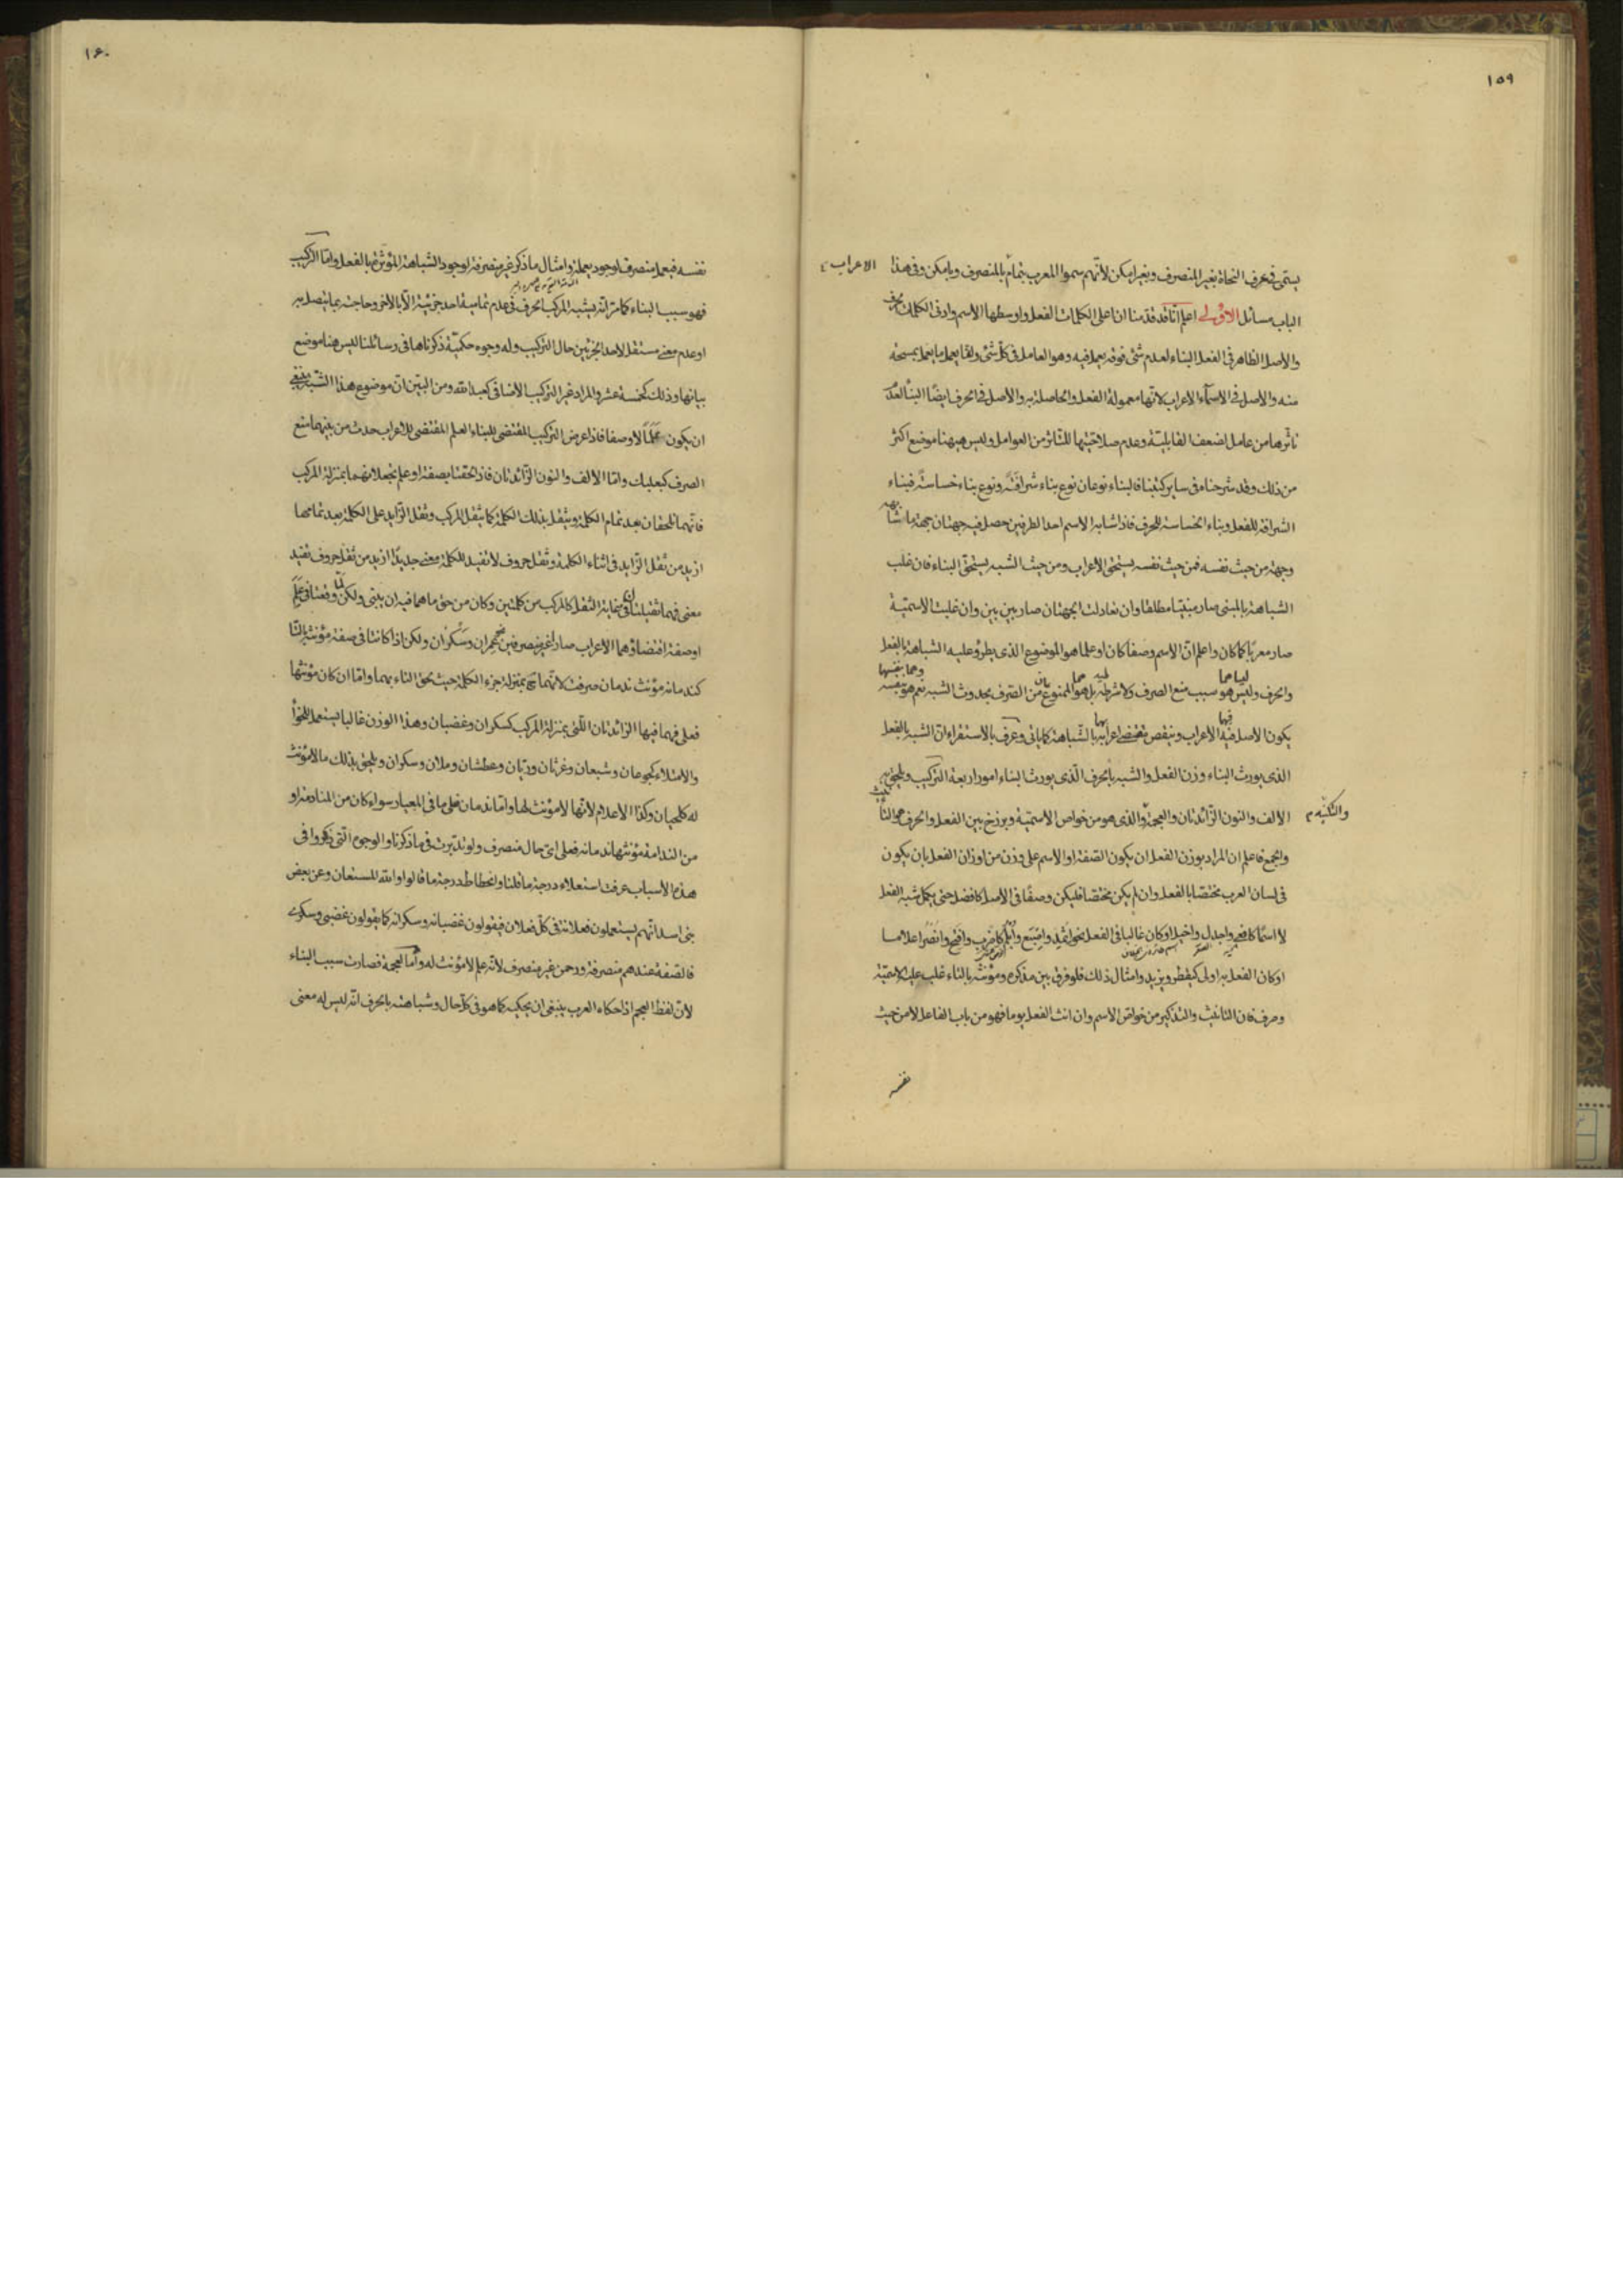 ١٥٩
يسمّى في عرف النحاة بغير المنصرف وبغير امكن لأنّهم سموا المعرب بتمام الاعراب بالمنصرف وبامكن وفي هذا
الباب مسائل الاولى اعلم انّا قد قدّمنا ان اعلى الكلمات الفعل واوسطها الاسم وادنى الكلمات الحرف
والاصل الظاهر في الفعل البناء لعدم شئ فوقه يعمل فيه وهو العامل في كلّ شئ ولقا يعمل ما يعمل بمسحة
منه والاصل في الاسمآء الاعراب لانّها معمولة الفعل والحاصلة به والاصل في الحرف ايضًا البنا لعدم
تاثّرها من عامل لضعف القابليّة وعدم صلاحيّتها للتاثر من العوامل وليس هيهنا موضع اكثر
من ذلك وقد شرحناه في ساير كتبنا فالبناء نوعان نوع بناء شرافة ونوع بناء خساسة فبناء
الشرافة للفعل وبناء الخساسة للحرف فاذا شابه الاسم احد الطرفين حصل فيه جهتان جهة ما شابهه
وجهة من حيث نفسه فمن حيث نفسه يستحق الاعراب ومن حيث الشبه يستحق البناء فان غلب
الشباهة بالمبنى صار مبنيّا مطلقا وان تعادلت الجهتان صار بين بين وان غلبت الاسميّة
صار معربًا كما كان واعلم انّ الاسم وصفا كان او علما هو الموضوع الذى يطرؤ عليه الشباهة بالفعل
والحرف وليس هو سبب منع الصرف ولا شرط له بل هو الممنوع من الصرف بحدوث الشبه نعم هو بنفسه
يكون الاصل فيه الاعراب وينقص بعض اعرابه بالشباهة كما يأتى وعرف بالاستقراء انّ الشبه بالفعل
الذى يورث البناء وزن الفعل والشبه بالحرف الّذى يورث البناء امور اربعة التركيب ويلحق به
الالف والنون الزّائدتان والعجمة والذى هو من خواص الاسميّة وبرزخ بين الفعل والحرف هو التأنيث
والجمع فاعلم ان المراد بوزن الفعل ان يكون الصّفة او الاسم على وزن من اوزان الفعل بان يكون
في لسان العرب مختصّا بالفعل وان لم يكن مختصا فليكن وصفًا في الاصل كافضل حتى يكمل شبه الفعل
لا اسمًا كافعى واجدل واخيل او كان غالبا في الفعل نحو اثمد واصبع وابلم كاضرب وافتح وانصر اعلاما
او كان الفعل به اولى كيفطر ويزيد وامثال ذلك فلو فرق بين مذكره ومؤنثه بالتاء غلب عليه الاسميّة
وصرف فان التانيث والتذكير من خواصّ الاسم وان انث الفعل يوما فهو من باب الفاعل لا من حيث
نفسه
١۶٠
نفسه فيعمل منصرف لوجود يعملة وامثال ما ذكر غير منصرفة لوجود الشباهة المؤثرة بالفعل وامّا التركيب
فهو سبب البناء كما مرّ انّه يشبه المركب الحرف في عدم تمامية احد جزئيه الّا بالاخر وحاجته بما يتصل به
او عدم معنى مستقل لاحد الجزئين حال التركيب وله وجوه حكميّة ذكرناها في رسائلنا ليس هنا موضع
بيانها وذلك كخمسة عشر والمراد غير التركيب الاضافى كعبد الله ومن البيّن انّ موضوع هذا الشبه ينبغي
ان يكون علمًا لا وصفا فاذا عرض التركيب المقتضى للبناء العلم المقتضى للاعراب حدث من بينهما منع
الصرف كبعلبك وامّا الالف والنون الزّائدتان فاذا لحقتا بصفة او علم تجعلانهما بمنزلة المركب
فانّهما تلحقان بعد تمام الكلمة ويثقل بذلك الكلمة كما يثقل المركب وثقل الزّايد على الكلمة بعد تمامها
ازيد من ثقل الزّايد في اثناء الكلمة وثقل حروف لا تفيد للكلمة معنى جديدًا ازيد من ثقل حروف تفيد
معنى فهما ثقيلتان في غاية الثقل كالمركب من كلمتين وكان من حق ما هما فيه ان يبنى ولكن لمّا وقعتا في علم
او صفة اقتضاؤهما الاعراب صارا غير منصرفين نحو عمران وسكران ولكن اذا كانتا في صفة مؤنثه بالتا
كندمانه مؤنث ندمان صرفت لانّهما ح بمنزلة جزء الكلمة حيث لحق التاء بهما وامّا ان كان مؤنثها
فعلى فهما فيها الزائدتان اللّتى بمنزلة المركب كسكران وغضبان وهذا الوزن غالبا يستعمل للخوأ
والامتلاء كجوعان وشبعان وغرثان وريّان وعطشان وملان وسكران ويلحق بذلك ما لا مؤنث
له كلحيان وكذا الاعلام لانّها لا مؤنث لها وامّا ندمان فعلى ما في المعيار سواء كان من المنادمة او
من الندامة مؤنثها ندمانه فعلى اىّ حال منصرف ولو تدبّرت في ما ذكرنا والوجوه الّتى ذكروا في
هذه الاسباب عرفت استعلاء درجة ما قلنا وانحطاط درجة ما قالوا والله المستعان وعن بعض
بنى اسد انّهم يستعملون فعلانة في كلّ فعلان فيقولون غضبانه وسكرانه كما يقولون غضبى وسكرى
فالصّفة عندهم منصرفة ورحمن غير منصرف لانّه علم لا مؤنث له وامّا العجمة فصارت سبب البناء
لانّ لفظ العجم اذا حكاه العرب ينبغى ان يحكيه كما هو في كلّ حال وشباهته بالحرف انّه ليس له معنى